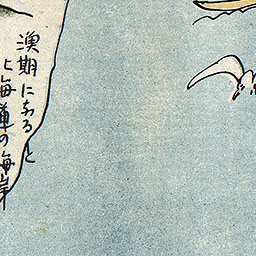 漁期になると
北海道の海岸